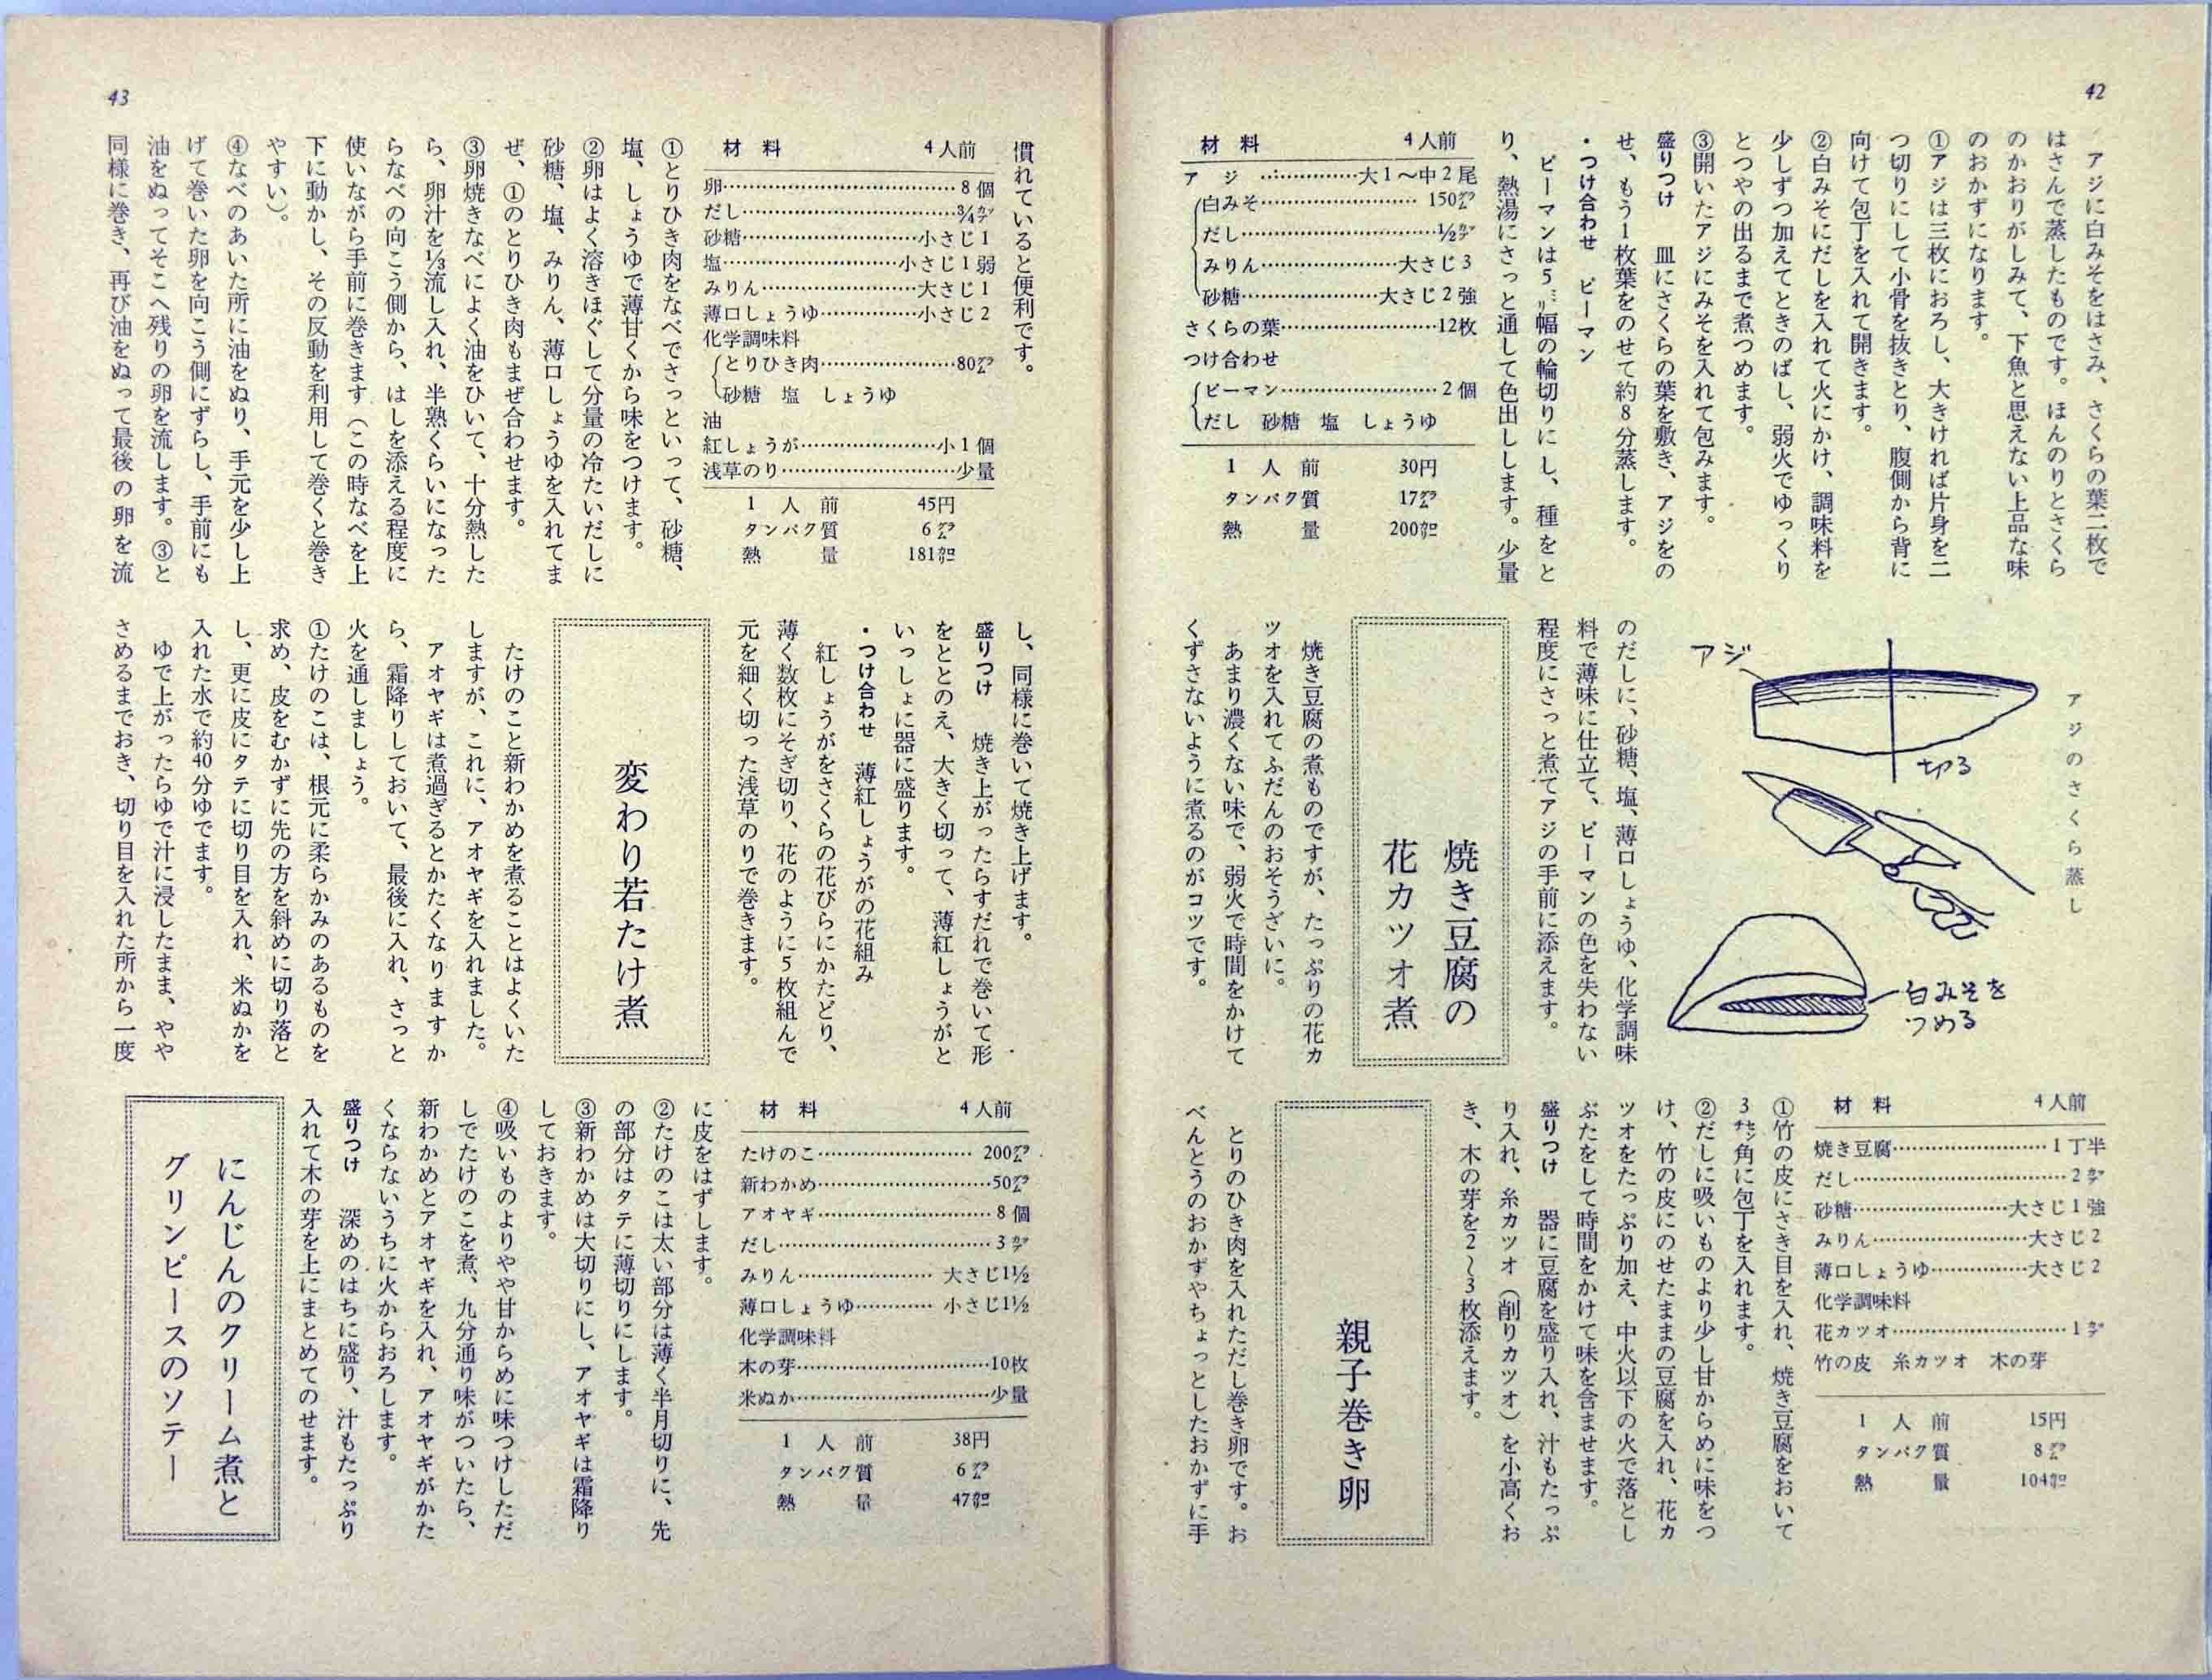 42
アジに白みそをはさみ、さくらの葉二枚で
はさんで蒸したものです。ほんのりとさくら
のかおりがしみて、下魚と思えない上品な味
のおかずになります。
①アジは三枚におろし、大きければ片身を二
つ切りにして小骨を抜きとり、腹側から背に
向けて包丁を入れて開きます。
②白みそにだしを入れて火にかけ、調味料を
少しずつ加えてときのばし、弱火でゆっくり
とつやの出るまで煮つめます。
③開いたアジにみそを入れて包みます。
盛りつけ 皿にさくらの葉を敷き、アジをの
せ、もう1枚葉をのせて約8分蒸します。
・つけ合わせ ピーマン
ピーマンは5㍉幅の輪切りにし、種をと
り、熱湯にさっと通して色出しします。少量
材料 4人前
アジ……………大1〜中2尾
白みそ……………150㌘
だし……………½㌍
みりん……………大さじ3
砂糖……………大さじ2強
さくらの葉……………12枚
つけ合わせ
ピーマン……………2個
だし 砂糖 塩 しょうゆ
1人前 30円
タンパク質 17㌘
熱量 200㌍
アジのさくら蒸し
アジ
切る
白みそを
つめる
のだしに、砂糖、塩、薄口しょうゆ、化学調味
料で薄味に仕立て、ピーマンの色を失わない
程度にさっと煮てアジの手前に添えます。
焼き豆腐の
花カツオ煮
焼き豆腐の煮ものですが、たっぷりの花カ
ツオを入れてふだんのおそうざいに。
あまり濃くない味で、弱火で時間をかけて
くずさないように煮るのがコツです。
材料 4人前
焼き豆腐……………1丁半
だし……………2㌍
砂糖……………大さじ1強
みりん……………大さじ2
薄口しょうゆ……………大さじ2
化学調味料
花カツオ……………1㌍
竹の皮 糸カツオ 木の芽
1人前 15円
タンパク質 8㌘
熱量 104㌍
①竹の皮にさき目を入れ、焼き豆腐をおいて
3㌢角に包丁を入れます。
②だしに吸いものより少し甘からめに味をつ
け、竹の皮にのせたままの豆腐を入れ、花カ
ツオをたっぷり加え、中火以下の火で落とし
ぶたをして時間をかけて味を含ませます。
盛りつけ 器に豆腐を盛り入れ、汁もたっぷ
り入れ、糸カツオ（削りカツオ）を小高くお
き、木の芽を2〜3枚添えます。
親子巻き卵
とりのひき肉を入れただし巻き卵です。お
べんとうのおかずやちょっとしたおかずに手
43
慣れていると便利です。
材料 4人前
卵……………8個
だし……………¾㌍
砂糖……………小さじ1
塩……………小さじ1弱
みりん……………大さじ1
薄口しょうゆ……………小さじ2
化学調味料
とりひき肉……………80㌘
砂糖 塩 しょうゆ
油
紅しょうが……………小1個
浅草のり……………少量
1人前 45円
タンパク質 6㌘
熱量 181㌍
①とりひき肉をなべでさっといって、砂糖、
塩、しょうゆで薄甘くから味をつけます。
②卵はよく溶きほぐして分量の冷たいだしに
砂糖、塩、みりん、薄口しょうゆを入れてま
ぜ、①のとりひき肉もまぜ合わせます。
③卵焼きなべによく油をひいて、十分熱した
ら、卵汁を⅓流し入れ、半熟くらいになった
らなべの向こう側から、はしを添える程度に
使いながら手前に巻きます（この時なべを上
下に動かし、その反動を利用して巻くと巻き
やすい）。
④なべのあいた所に油をぬり、手元を少し上
げて巻いた卵を向こう側にずらし、手前にも
油をぬってそこへ残りの卵を流します。③と
同様に巻き、再び油をぬって最後の卵を流
し、同様に巻いて焼き上げます。
盛りつけ 焼き上がったらすだれで巻いて形
をととのえ、大きく切って、薄紅しょうがと
いっしょに器に盛ります。
・つけ合わせ 薄紅しょうがの花組み
紅しょうがをさくらの花びらにかたどり、
薄く数枚にそぎ切り、花のように5枚組んで
元を細く切った浅草のりで巻きます。
変わり若たけ煮
たけのこと新わかめを煮ることはよくいた
しますが、これに、アオヤギを入れました。
アオヤギは煮過ぎるとかたくなりますか
ら、霜降りしておいて、最後に入れ、さっと
火を通しましょう。
①たけのこは、根元に柔らかみのあるものを
求め、皮をむかずに先の方を斜めに切り落と
し、更に皮にタテに切り目を入れ、米ぬかを
入れた水で約40分ゆでます。
ゆで上がったらゆで汁に浸したまま、やや
さめるまでおき、切り目を入れた所から一度
に皮をはずします。
材料 4人前
たけのこ……………200㌘
新わかめ……………50㌘
アオヤギ……………8個
だし……………3㌍
みりん……………大さじ1½
薄口しょうゆ……………小さじ1½
化学調味料
木の芽……………10枚
米ぬか……………少量
1人前 38円
タンパク質 6㌘
熱量 47㌍
②たけのこは太い部分は薄く半月切りに、先
の部分はタテに薄切りにします。
③新わかめは大切りにし、アオヤギは霜降り
しておきます。
④吸いものよりやや甘からめに味つけしただ
しでたけのこを煮、九分通り味がついたら、
新わかめとアオヤギを入れ、アオヤギがかた
くならないうちに火からおろします。
盛りつけ 深めのはちに盛り、汁もたっぷり
入れて木の芽を上にまとめてのせます。
にんじんのクリーム煮と
グリンピースのソテー